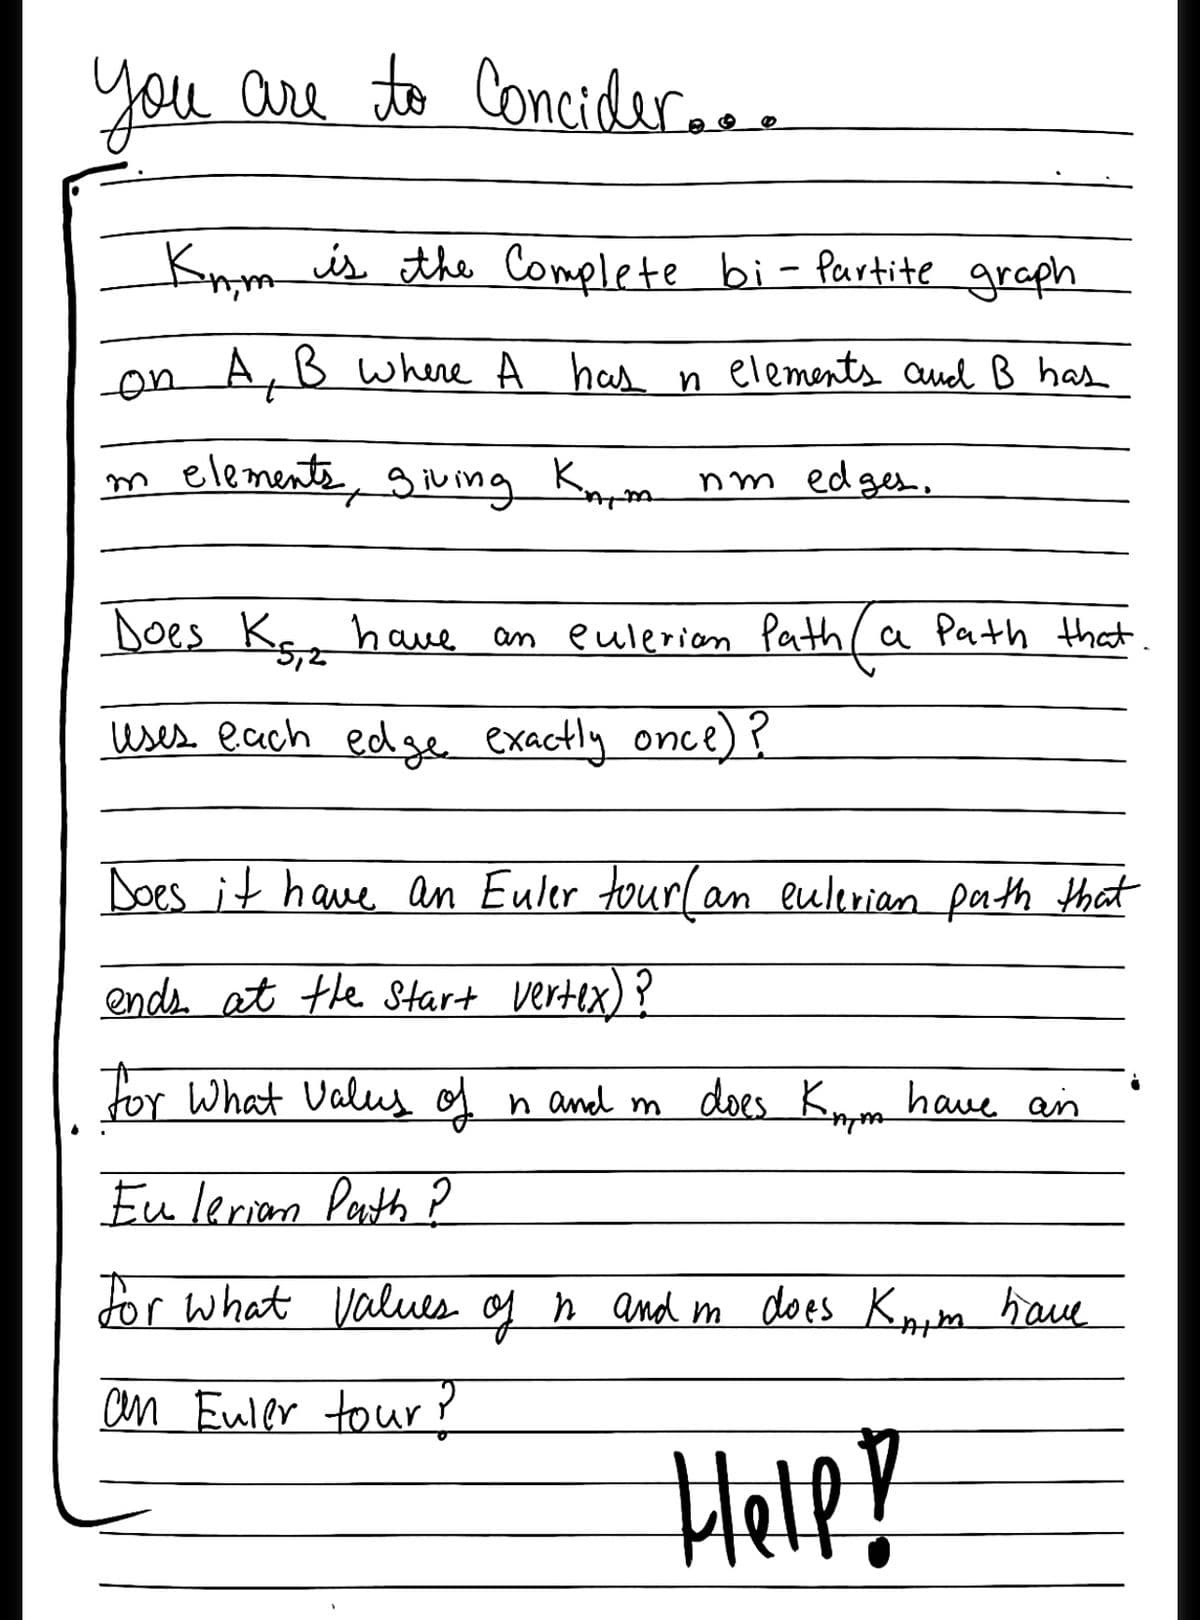 You are to Concider...
K n,m is the Complete bi-Partite graph
on A, B where A has n elements and B has
m elements, giving K n,m nm edges.
Does K 5,2 have an eulerian Path (a Path that
uses each edge exactly once)?
Does it have an Euler tour (an eulerian path that
ends at the start vertex)?
for what Valus of n and m does K n,m have an
Eulerian Path?
for what values of n and m does K n,m have
an Euler tour?
Help!